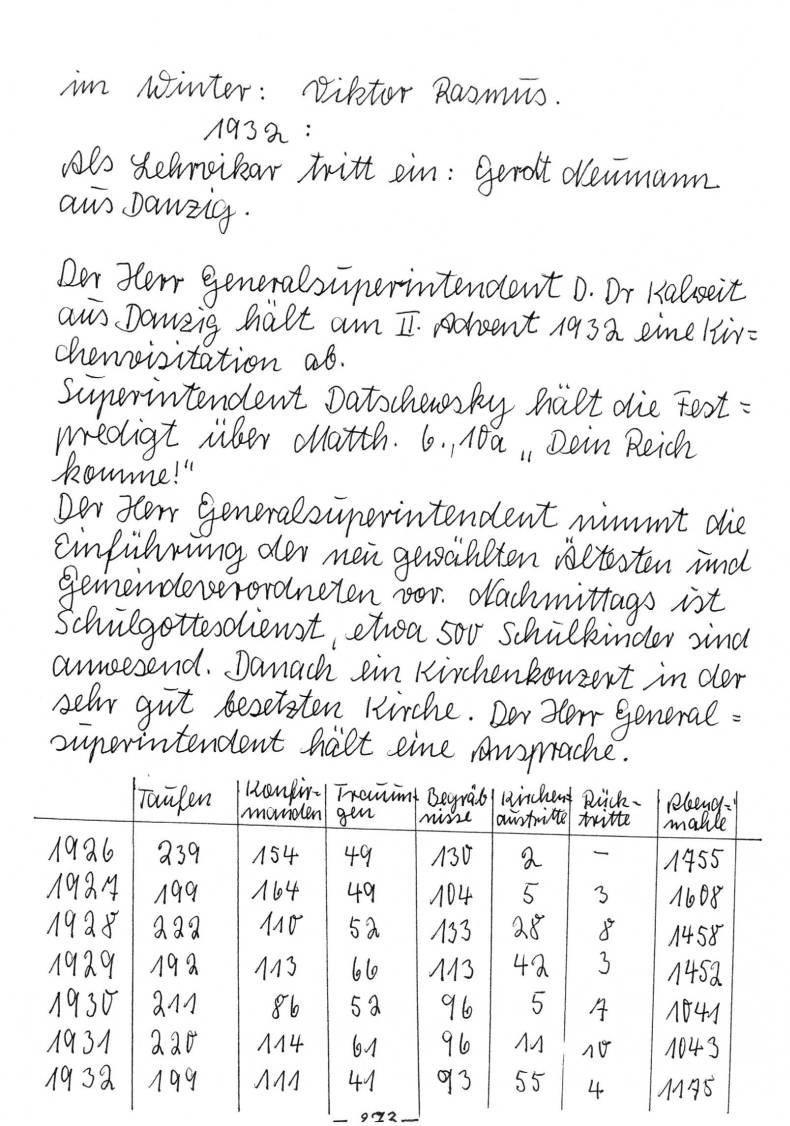 im Winter: Viktor Rasmus.
1932:
Als Lehrvikar tritt ein: Gerdt Neumann
aus Danzig.
Der Herr Generalsuperintendent D. Dr Kalweit
aus Danzig hält am II. Advent 1932 eine Kir=
chenvisitation ab.
Superintendent Datschewsky hält die Fest=
predigt über Matth. 6., 10a „Dein Reich
komme!"
Der Herr Generalsuperintendent nimmt die
Einführung der neu gewählten Ältesten und
Gemeindeverordneten vor. Nachmittags ist
Schulgottesdienst, etwa 500 Schulkinder sind
anwesend. Danach ein Kirchenkonzert in der
sehr gut besetzten Kirche. Der Herr General=
superintendent hält eine Ansprache.
Taufen Konfir=manden Trauun=gen Begräbnisse Kirchen=austritte Rück=tritte Abend=mahle
1926 239 154 49 130 2 – 1755
1927 199 164 49 104 5 3 1608
1928 222 110 52 133 28 8 1458
1929 192 113 66 113 42 3 1452
1930 211 86 52 96 5 7 1041
1931 220 114 61 96 11 10 1043
1932 199 111 41 93 55 4 1175